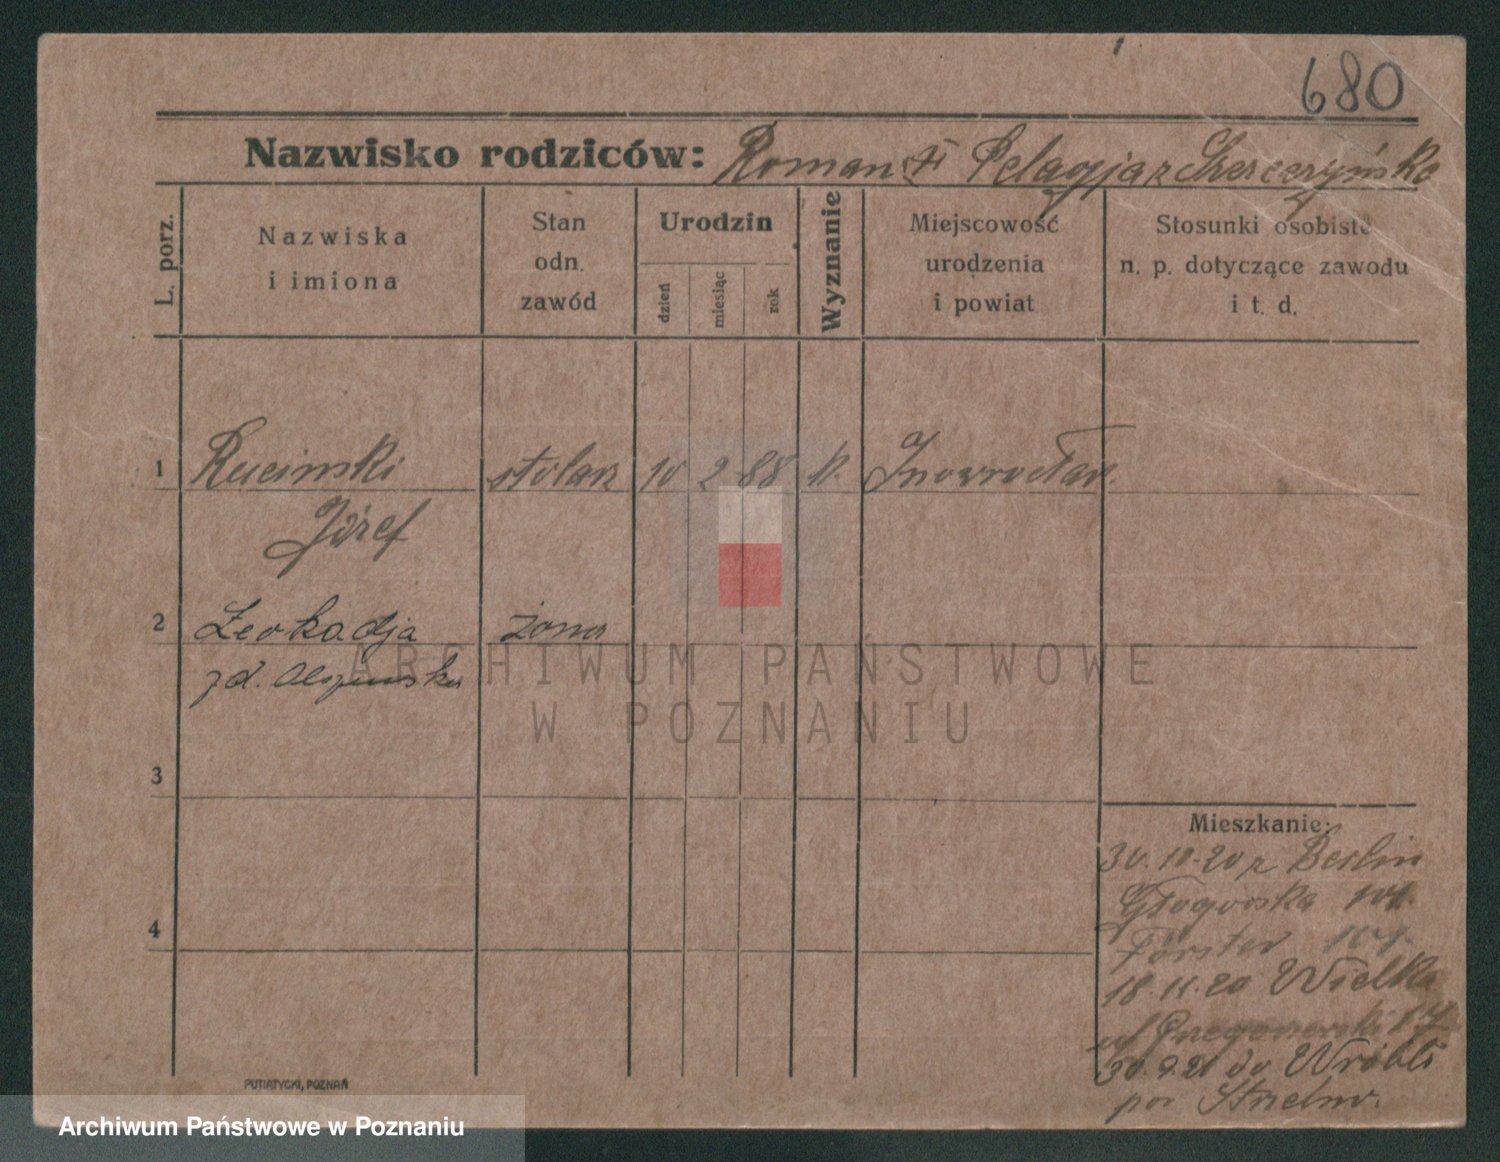 680
Nazwisko rodziców: Roman i Pelagja z
L. porz.
Nazwiska i imiona
Stan odn. zawód
Urodzin
dzień
miesiąc
rok
Wyznanie
Miejscowość urodzenia i powiat
Stosunki osobiste n. p. dotyczące zawodu i t. d.
1 Rucinski stolarz 10 2 88 k. Inowrocław.
Józef
2 Leokadja żona
zd.
3
4
Mieszkanie:
30.10.20 z Berlin
Głogowska 101.
Förster 104.
18.11.20 Wielka
30.9.21 do Wróble
pow Strzelno.
PUTIATYCKI, POZNAŃ
ARCHIWUM PAŃSTWOWE
W POZNANIU
Archiwum Państwowe w Poznaniu